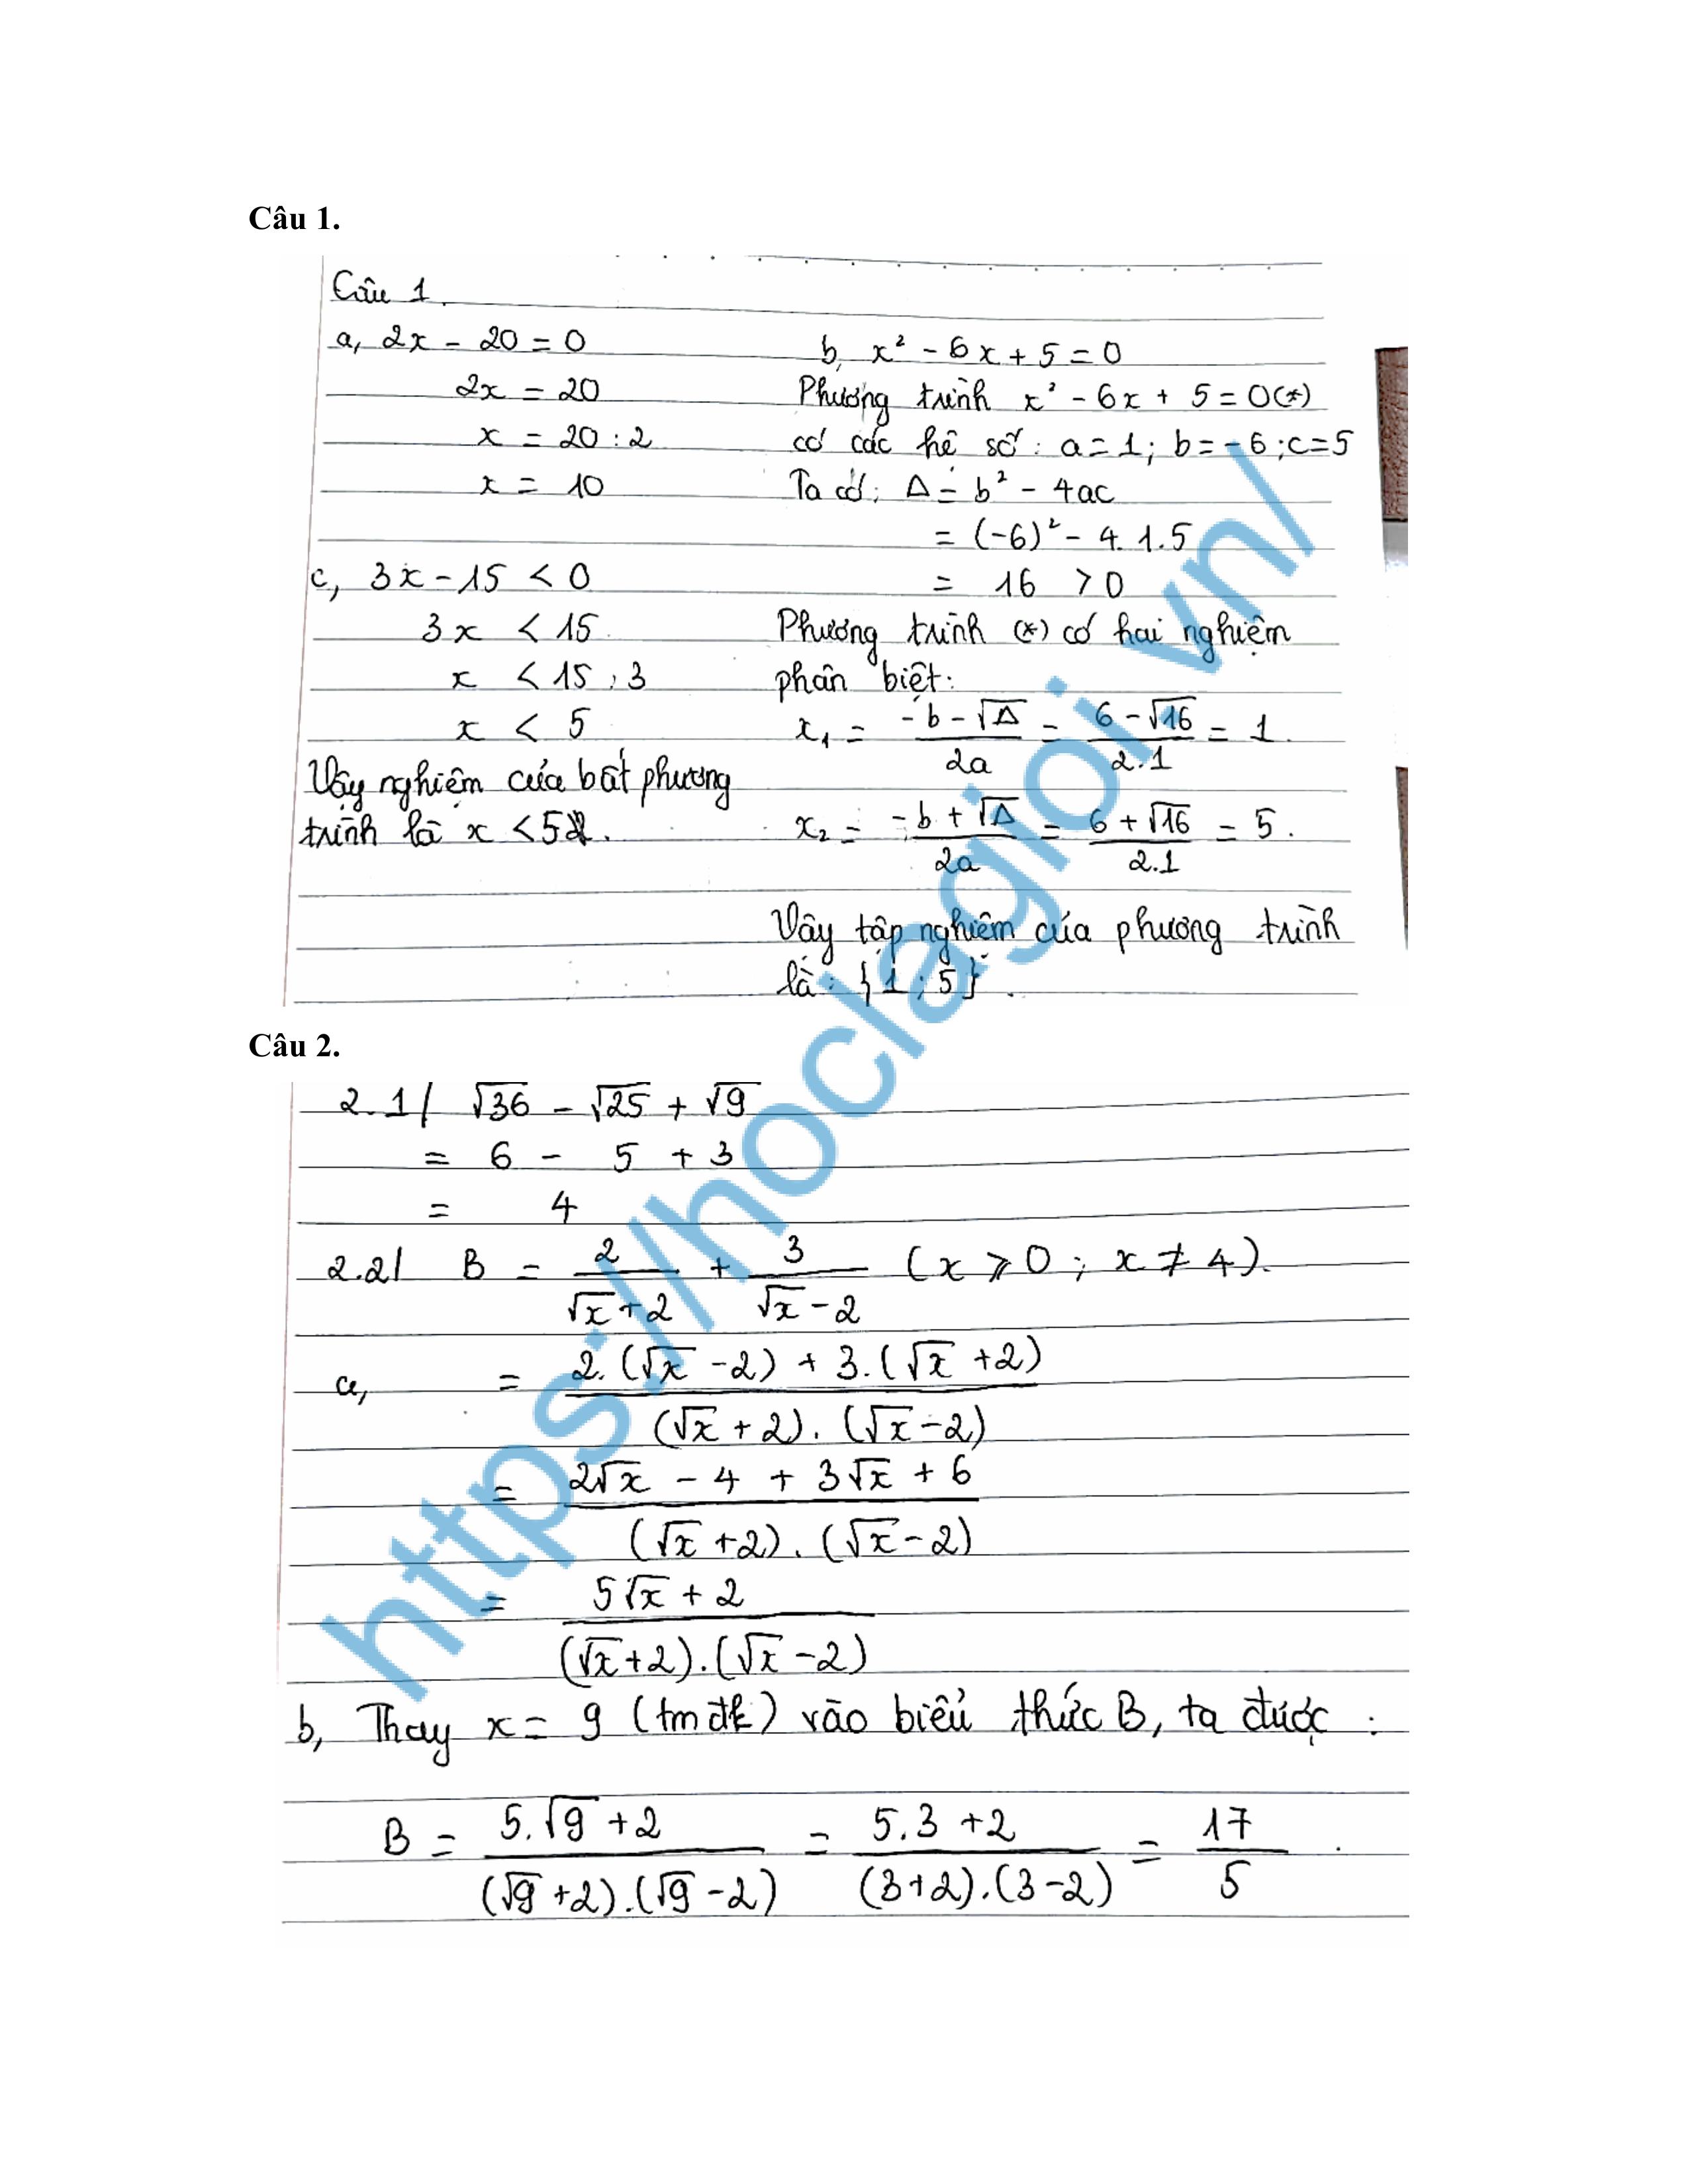 Câu 1.
Câu 1.
a, 2x - 20 = 0
2x = 20
x = 20 : 2
x = 10
c, 3x - 15 < 0
3x < 15
x < 15 : 3
x < 5
Vậy nghiệm của bất phương
trình là x < 5.
b, x² - 6x + 5 = 0
Phương trình x² - 6x + 5 = 0 (*)
có các hệ số: a = 1; b = -6; c = 5
Ta có: Δ = b² - 4ac
= (-6)² - 4.1.5
= 16 > 0
Phương trình (*) có hai nghiệm
phân biệt:
x₁ = (-b - √Δ)/(2a) = (6 - √16)/(2.1) = 1.
x₂ = (-b + √Δ)/(2a) = (6 + √16)/(2.1) = 5.
Vậy tập nghiệm của phương trình
là: {1; 5}.
Câu 2.
2.1/ √36 - √25 + √9
= 6 - 5 + 3
= 4
2.2/ B = 2/(√x + 2) + 3/(√x - 2) (x ⩾ 0; x ≠ 4).
a, = (2.(√x - 2) + 3.(√x + 2))/((√x + 2).(√x - 2))
= (2√x - 4 + 3√x + 6)/((√x + 2).(√x - 2))
= (5√x + 2)/((√x + 2).(√x - 2))
b, Thay x = 9 (tmđk) vào biểu thức B, ta được:
B = (5.√9 + 2)/((√9 + 2).(√9 - 2)) = (5.3 + 2)/((3 + 2).(3 - 2)) = 17/5.
https://hoclagioi.vn/